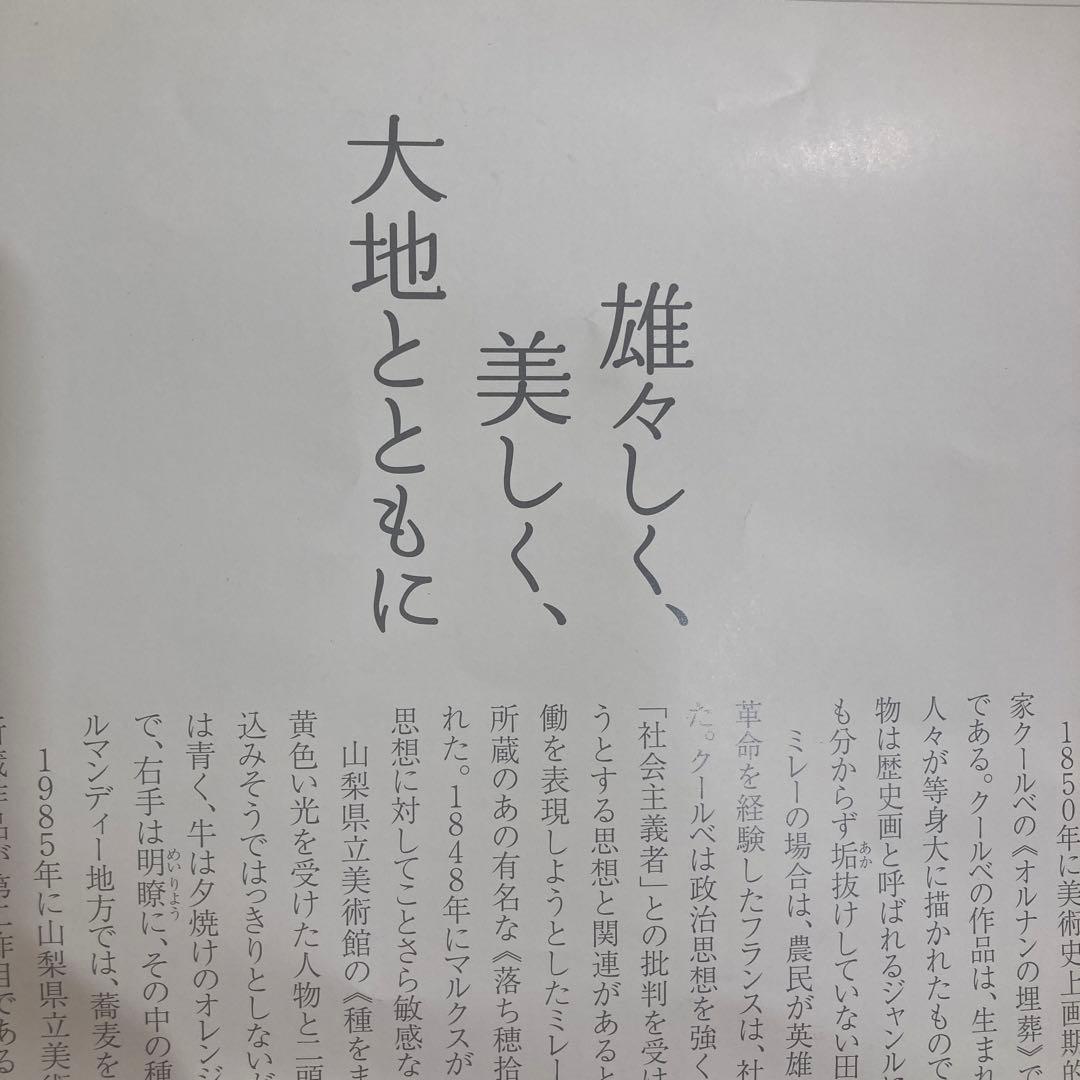 雄々しく、
美しく、
大地とともに
1850年に美術史上画期的
家クールベの《オルナンの埋葬》で
である。クールベの作品は、生まれ
人々が等身大に描かれたもので
物は歴史画と呼ばれるジャンル
も分からず垢抜けしていない田
あか
ミレーの場合は、農民が英雄
革命を経験したフランスは、社
た。クールベは政治思想を強く
「社会主義者」との批判を受け
うとする思想と関連があると
働を表現しようとしたミレー
所蔵のあの有名な《落ち穂拾
れた。1848年にマルクスが
思想に対してことさら敏感な
山梨県立美術館の《種をま
黄色い光を受けた人物と二頭
込みそうではっきりとしない
は青く、牛は夕焼けのオレンジ
で、右手は明瞭に、その中の種
めいりょう
ルマンディー地方では、蕎麦を
1985年に山梨県立美術